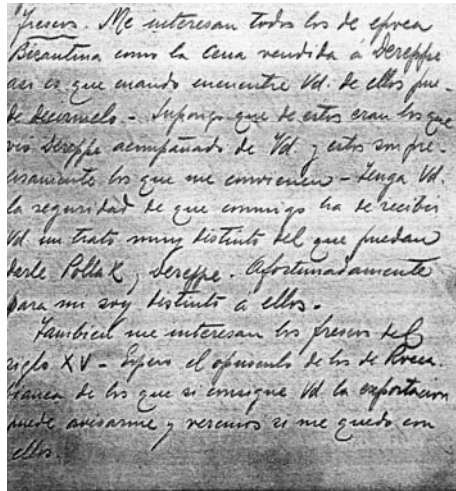 Frescos. Me interesan todos los de epoca
Bizantina como la Cena vendida a Dereppe
asi es que cuando encuentre Vd. de ellos pue-
de decirmelo - Supongo que de estos eran los que
vió Dereppe acompañado de Vd. y estos son pre-
cisamente los que me convienen - Tenga Vd.
la seguridad de que conmigo ha de recibir
Vd. un trato muy distinto del que puedan
darle Pollak y Dereppe. Afortunadamente
para mi soy distinto a ellos.
Tambien me interesan los frescos del
siglo XV - Espero el opusculo de los de Rocca-
bianca de los que si consigue Vd la exportacion
puede avisarme y veremos si me quedo con
ellos.